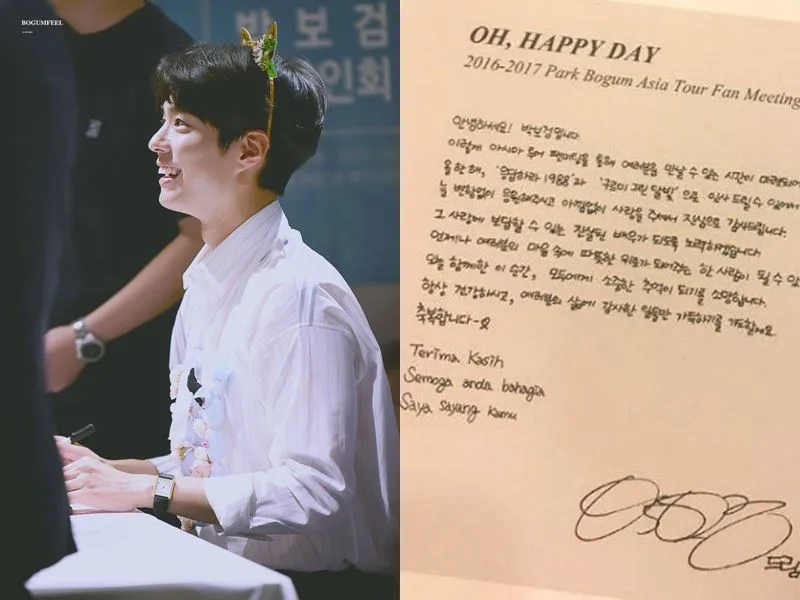 BOGUMFEEL
박보검
인회
OH, HAPPY DAY
2016-2017 Park Bogum Asia Tour Fan Meeting
안녕하세요! 박보검입니다.
이렇게 아시아 투어 팬미팅을 통해 여러분을 만날 수 있는 시간이 마련되어
올 한 해, '응답하라 1988'과 '구르미 그린 달빛'으로 인사 드릴 수 있어서
늘 변함없이 응원해주시고 아낌없이 사랑을 주셔서 진심으로 감사드립니다.
그 사랑에 보답할 수 있는 진실된 배우가 되도록 노력하겠습니다.
언제나 여러분의 마음 속에 따뜻한 위로가 되어주는 한 사람이 될 수 있
오늘 함께한 이 순간, 모두에게 소중한 추억이 되기를 소망합니다.
항상 건강하시고, 여러분의 삶에 감사한 일들만 가득하기를 기도할게요.
축복합니다-
Terima Kasih
Semoga anda bahagia
Saya sayang kamu
드림